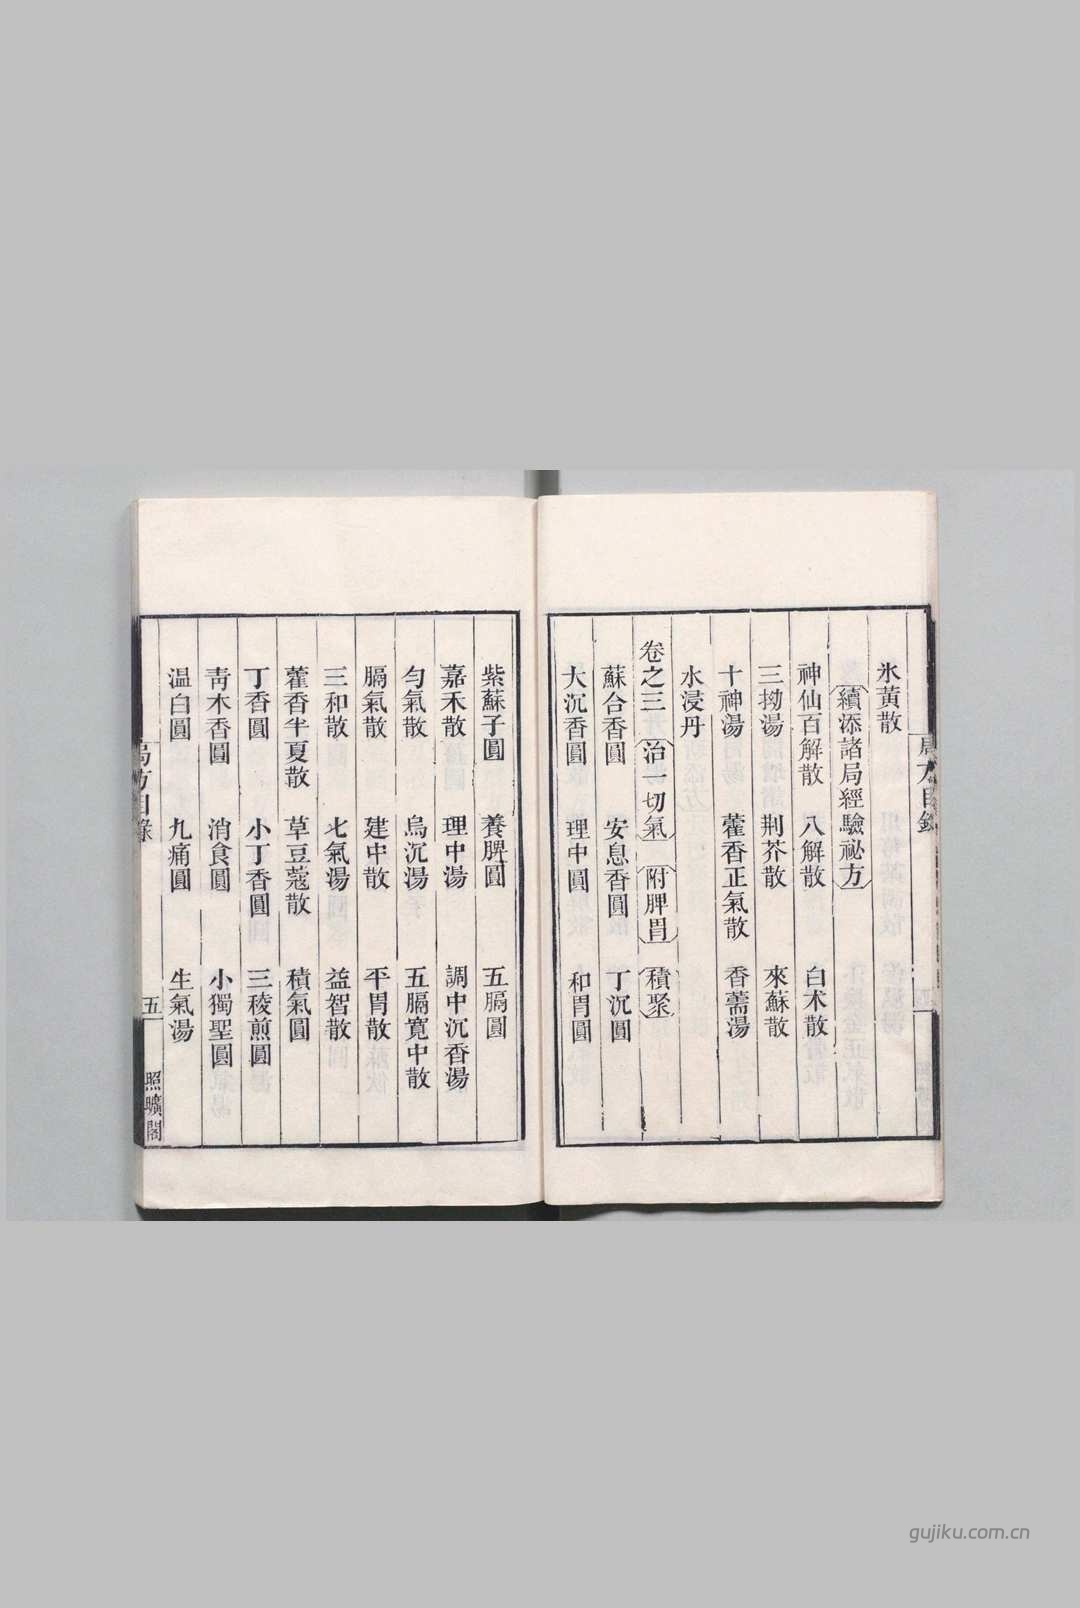 氷黃散
續添諸局經驗祕方
神仙百解散 八解散 白术散
三拗湯 荆芥散 來蘇散
十神湯 藿香正氣散 香薷湯
水浸丹
卷之三 治一切氣 附脾胃 積聚
蘇合香圓 安息香圓 丁沉圓
大沉香圓 理中圓 和胃圓
紫蘇子圓 養脾圓 五膈圓
嘉禾散 理中湯 調中沉香湯
勻氣散 烏沉湯 五膈寬中散
膈氣散 建中散 平胃散
三和散 七氣湯 益智散
藿香半夏散 草豆蔻散 積氣圓
丁香圓 小丁香圓 三稜煎圓
靑木香圓 消食圓 小獨聖圓
温白圓 九痛圓 生氣湯
局方目錄 五 照曠閣
gujiku.com.cn